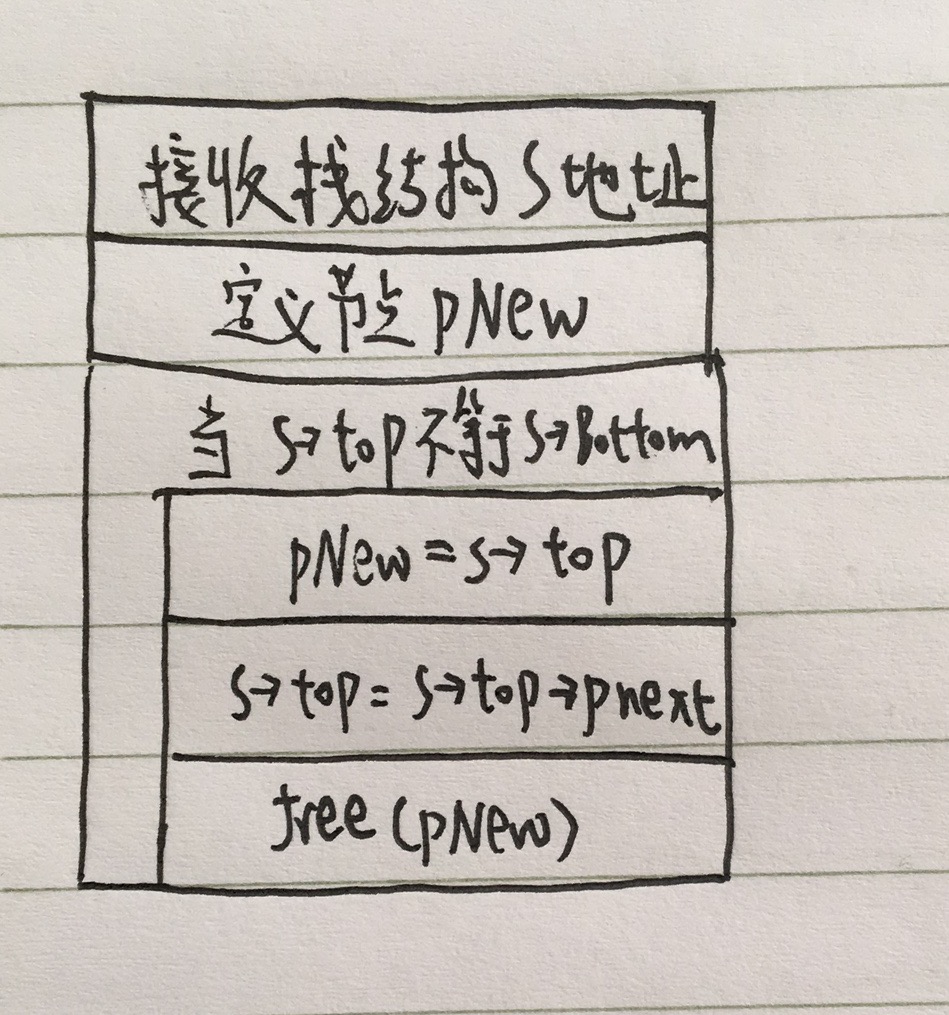 接收栈结构 S 地址
定义节点 pNew
当 S→top 不等于 S→Bottom
pNew = S→ top
S→top = S→top→pnext
free (pNew)